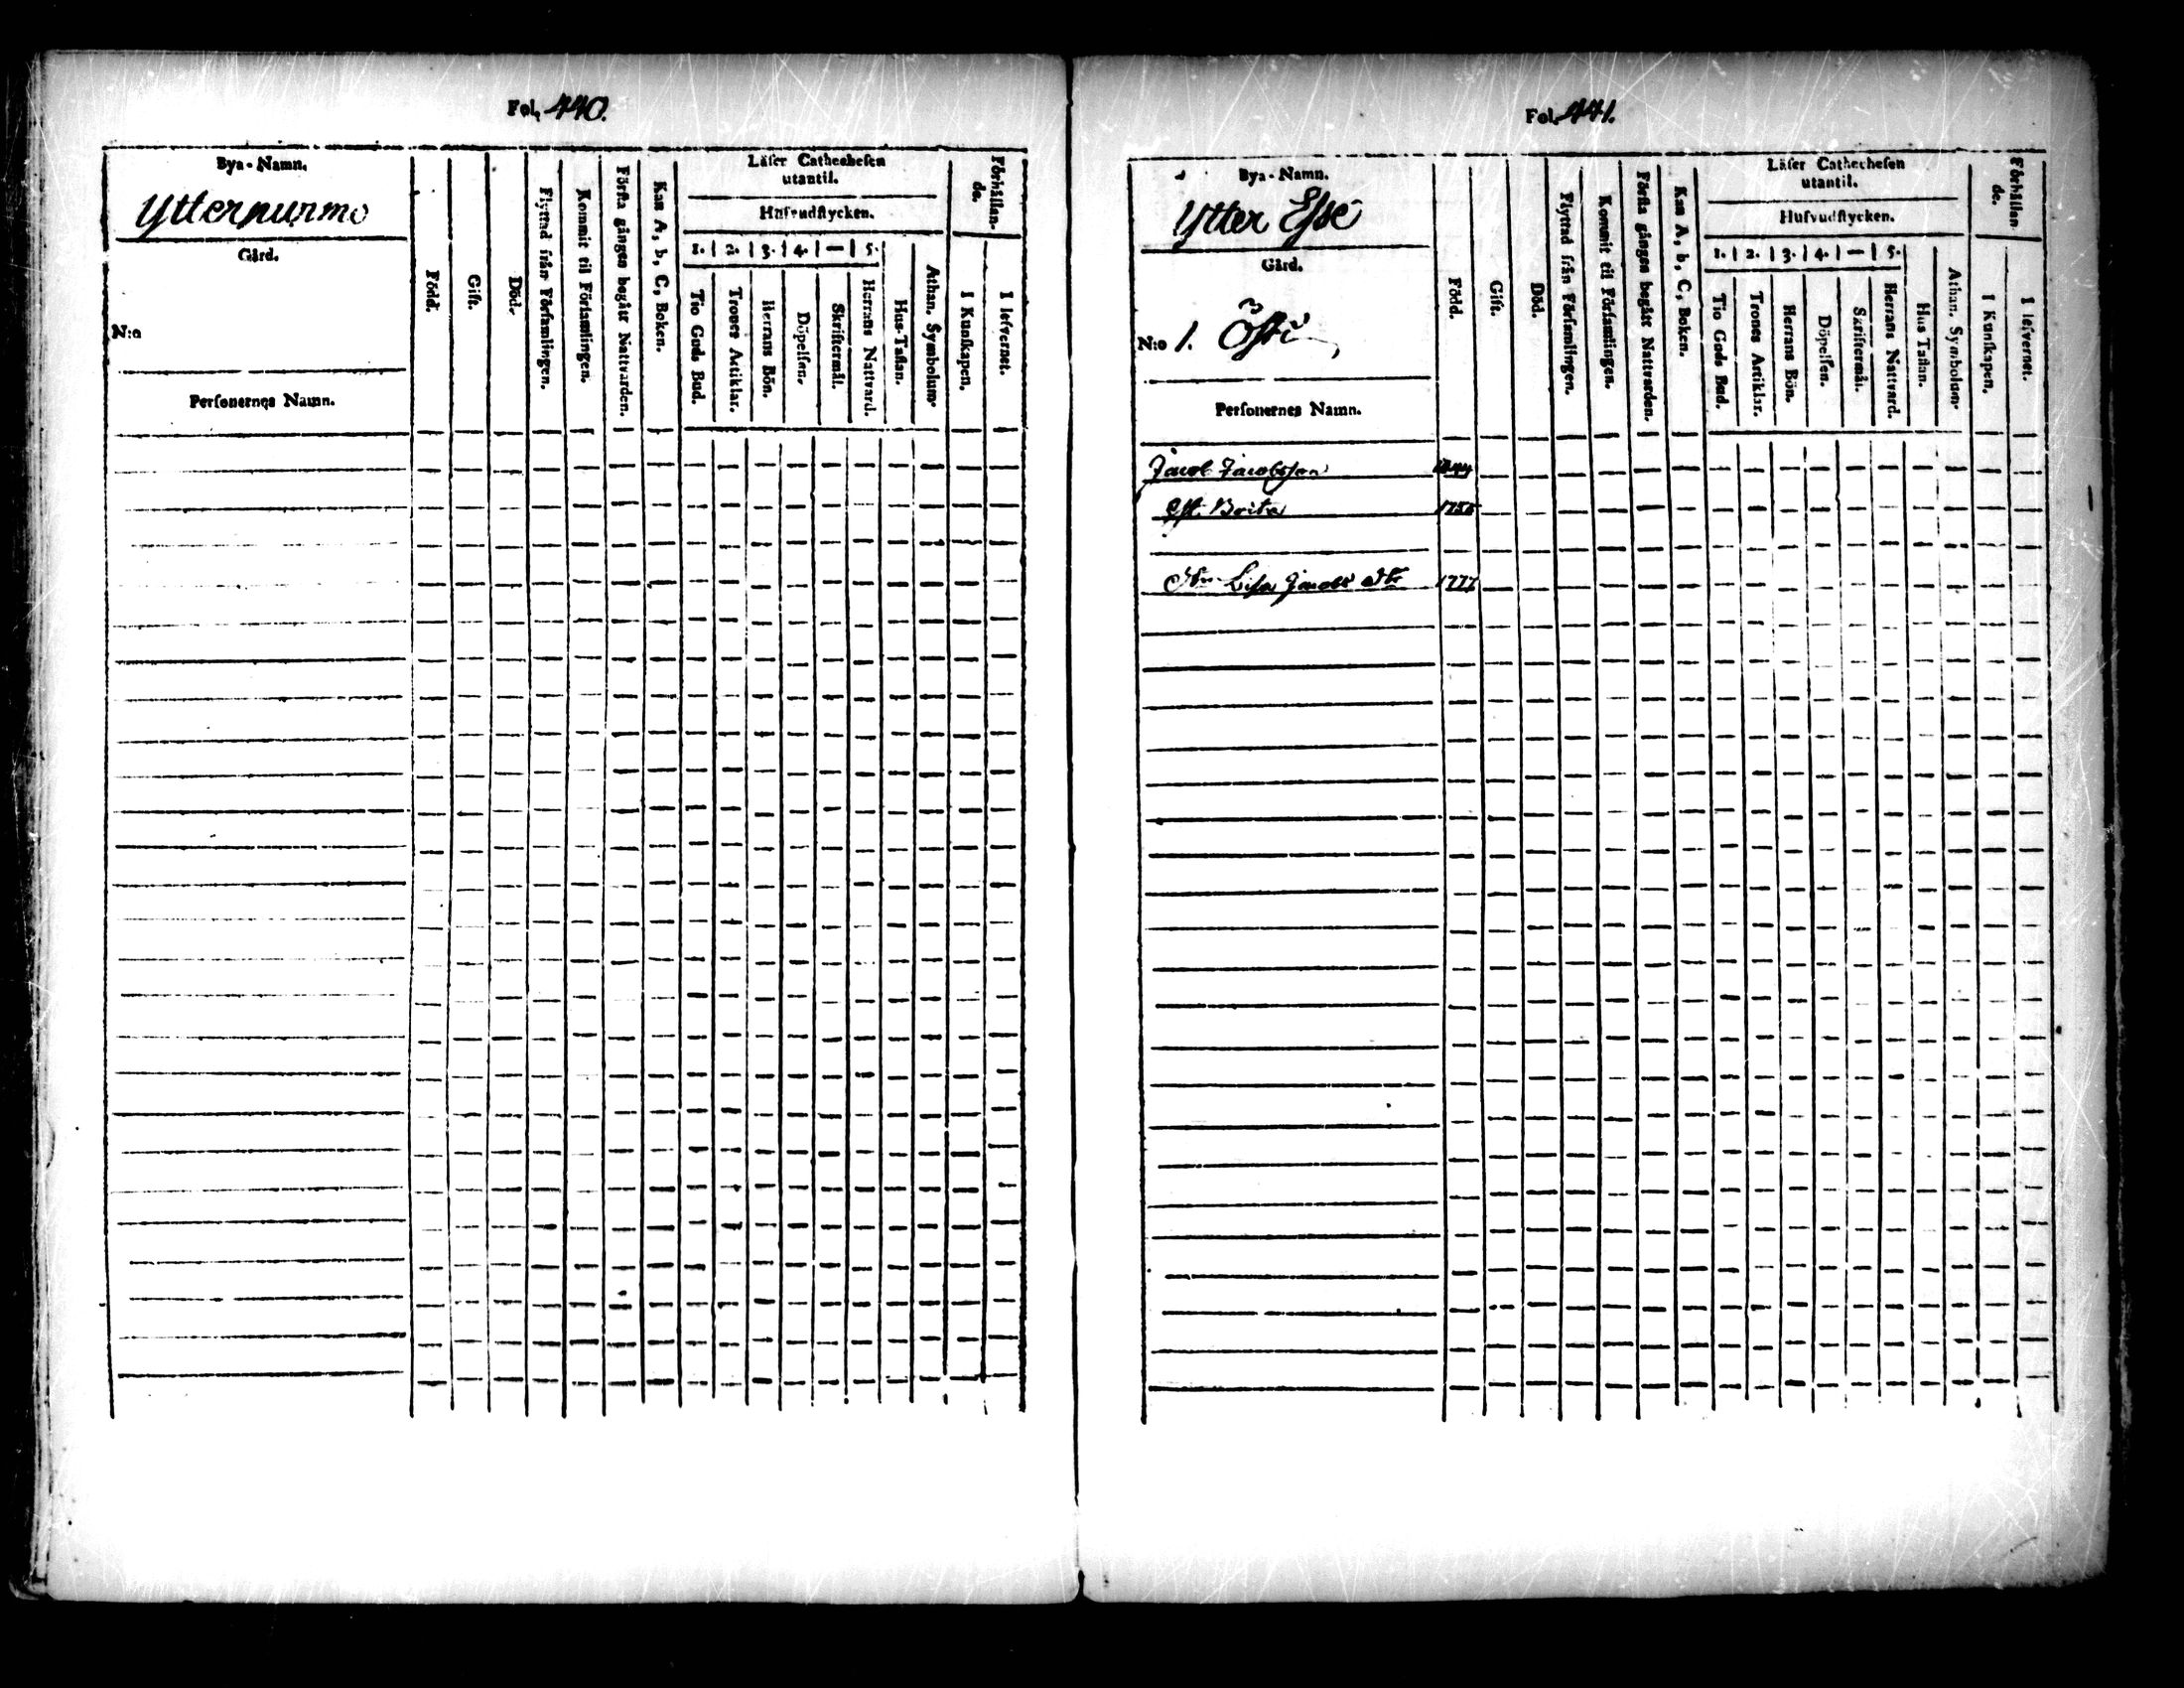 Fol. 440.
Bya-Namn.
Ytterpurmo
Gård.
N:o
Perſonernes Namn.
Född.
Gift.
Död.
Flyttad från Förſamlingen.
Kommit til Förſamlingen.
Förſta gången begått Nattvarden.
Kan A, b, C, Boken.
Läſer Catheeheſen
utantil.
Hufvudſtycken.
1. 2. 3. 4. — 5.
Tio Guds Bud.
Trones Artiklar.
Herrans Bön.
Döpelſen.
Skriftermål.
Herrans Nattvard.
Hus-Taflan.
Athan. Symbolum.
Förhållan-
de.
I Kunſkapen.
I lefvernet.
Fol. 441.
Bya-Namn.
Ytter Esse
Gård.
N:o 1.
Perſonernes Namn.
Född.
Gift.
Död.
Flyttad från Förſamlingen.
Kommit til Förſamlingen.
Förſta gången begått Nattvarden.
Kan A, b, C, Boken.
Läſer Catheeheſen
utantil.
Hufvudſtycken.
1. 2. 3. 4. — 5.
Tio Guds Bud.
Trones Artiklar.
Herrans Bön.
Döpelſen.
Skriftermål.
Herrans Nattvard.
Hus Taflan.
Athan. Symbolum.
Förhållan-
de.
I Kunſkapen.
I lefvernet.
Jacob Jacobsson
Brita
Lisa Jacobs 1777